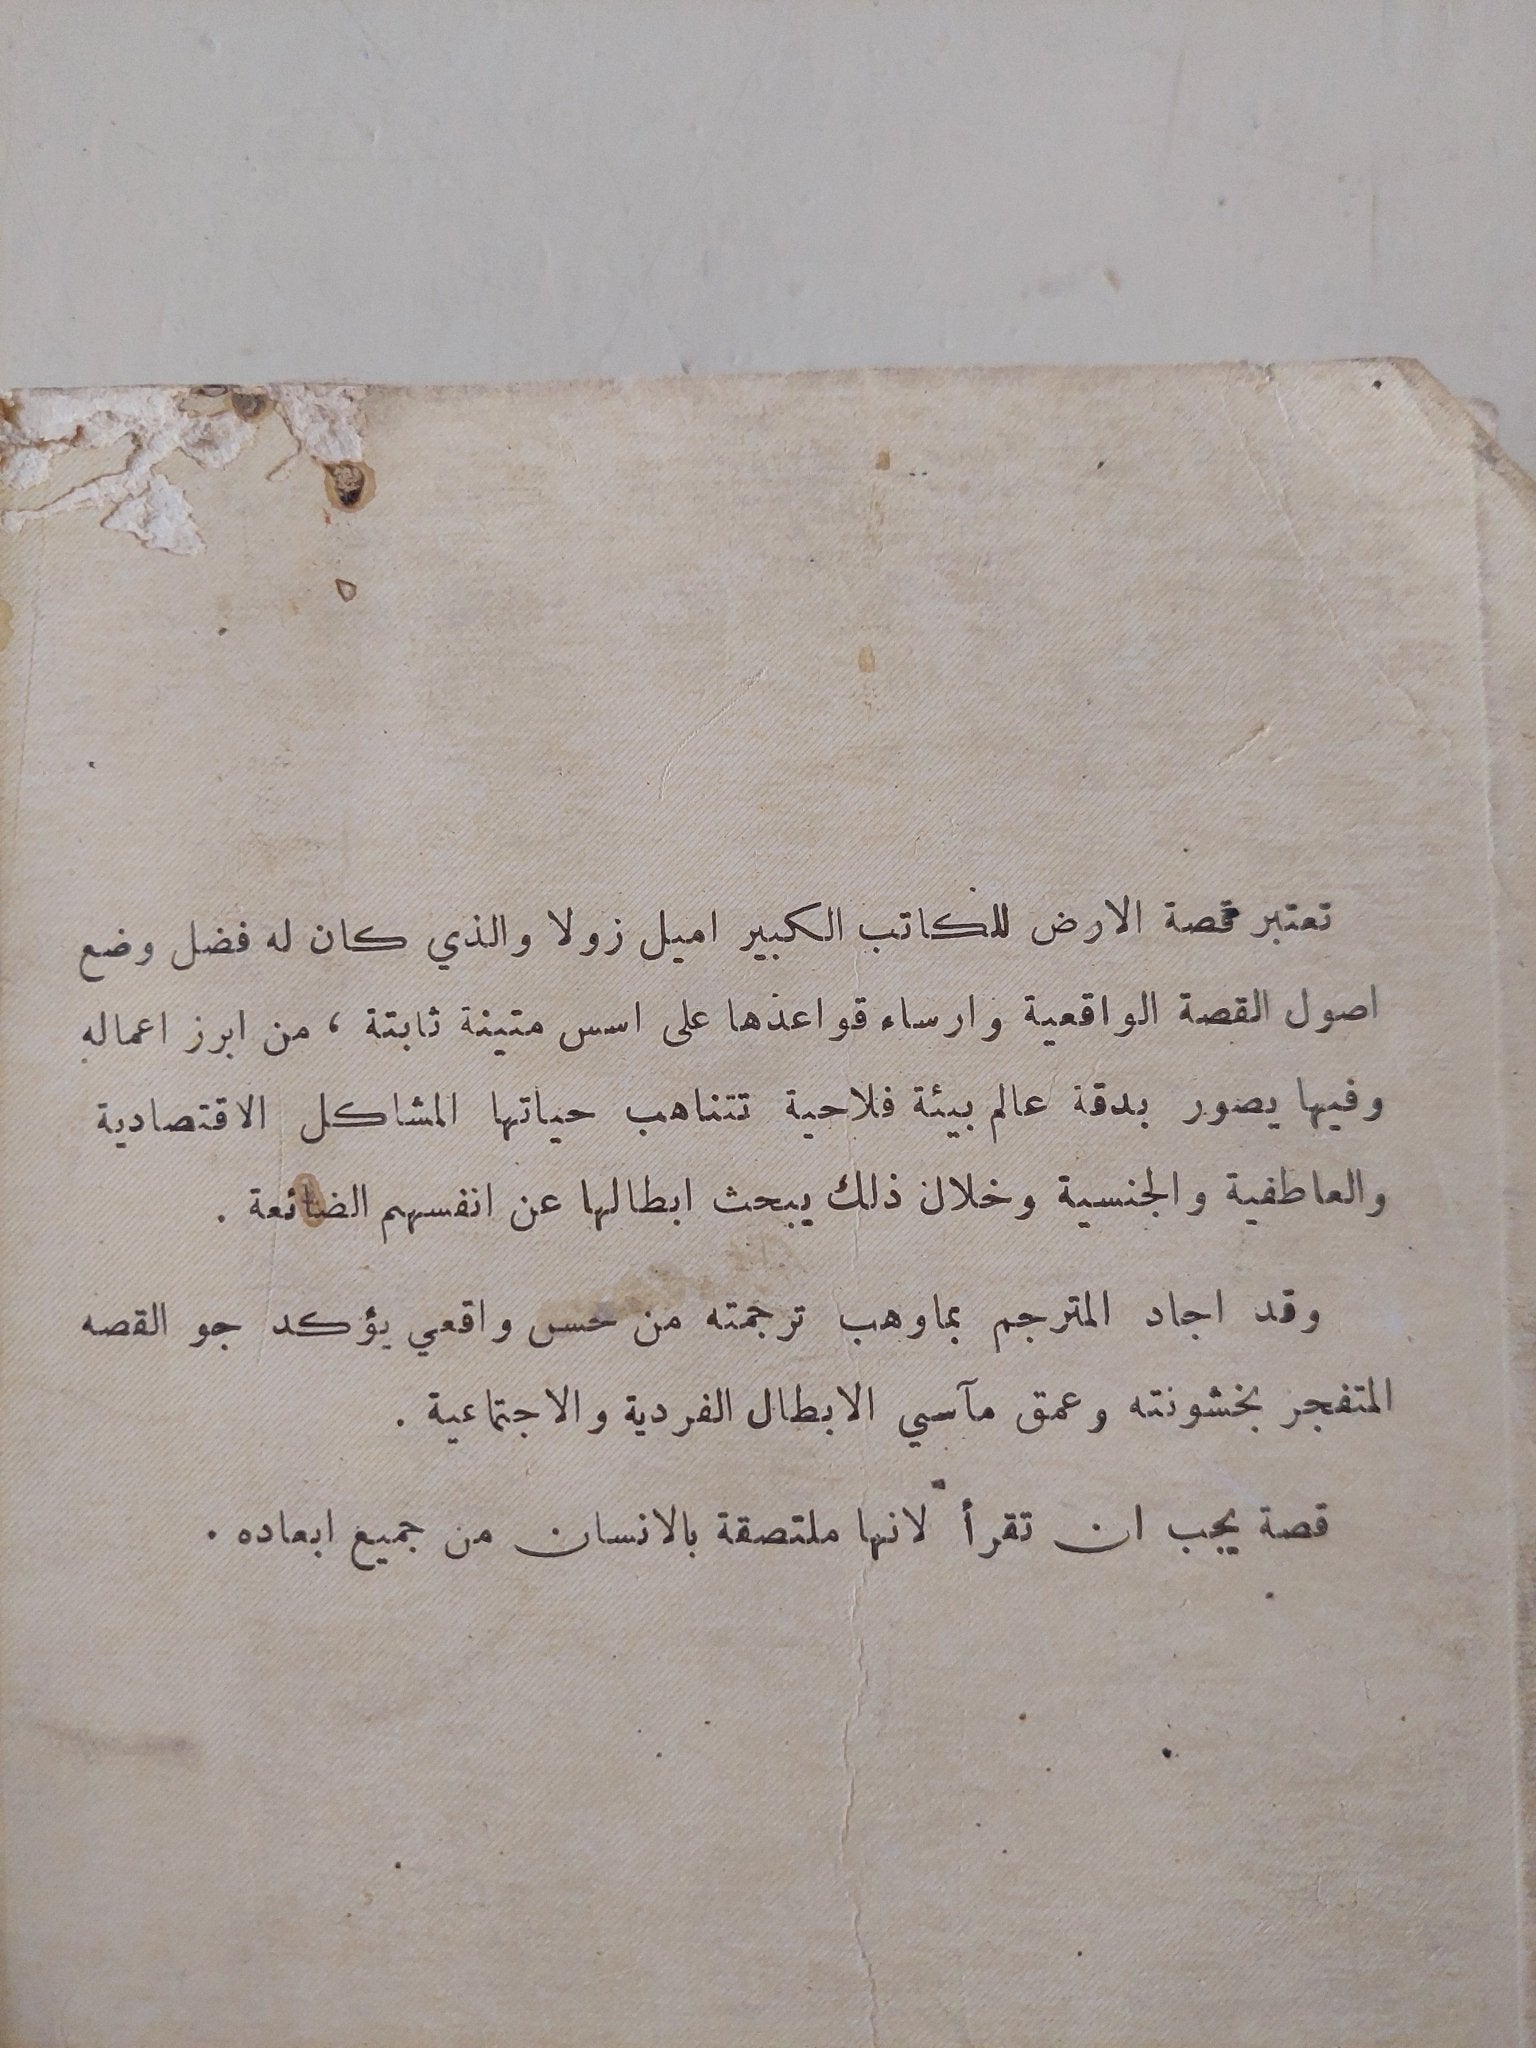 تعتبر قصة الارض للكاتب الكبير اميل زولا والذي كان له فضل وضع
اصول القصة الواقعية وارساء قواعدها على اسس متينة ثابتة ، من ابرز اعماله
وفيها يصور بدقة عالم بيئة فلاحية تتناهب حياتها المشاكل الاقتصادية
والعاطفية والجنسية وخلال ذلك يبحث ابطالها عن انفسهم الضائعة .
وقد اجاد المترجم بما وهب ترجمته من حس واقعي يؤكد جو القصه
المتفجر بخشونته وعمق مآسي الابطال الفردية والاجتماعية .
قصة يجب ان تقرأ لانها ملتصقة بالانسان من جميع ابعاده .